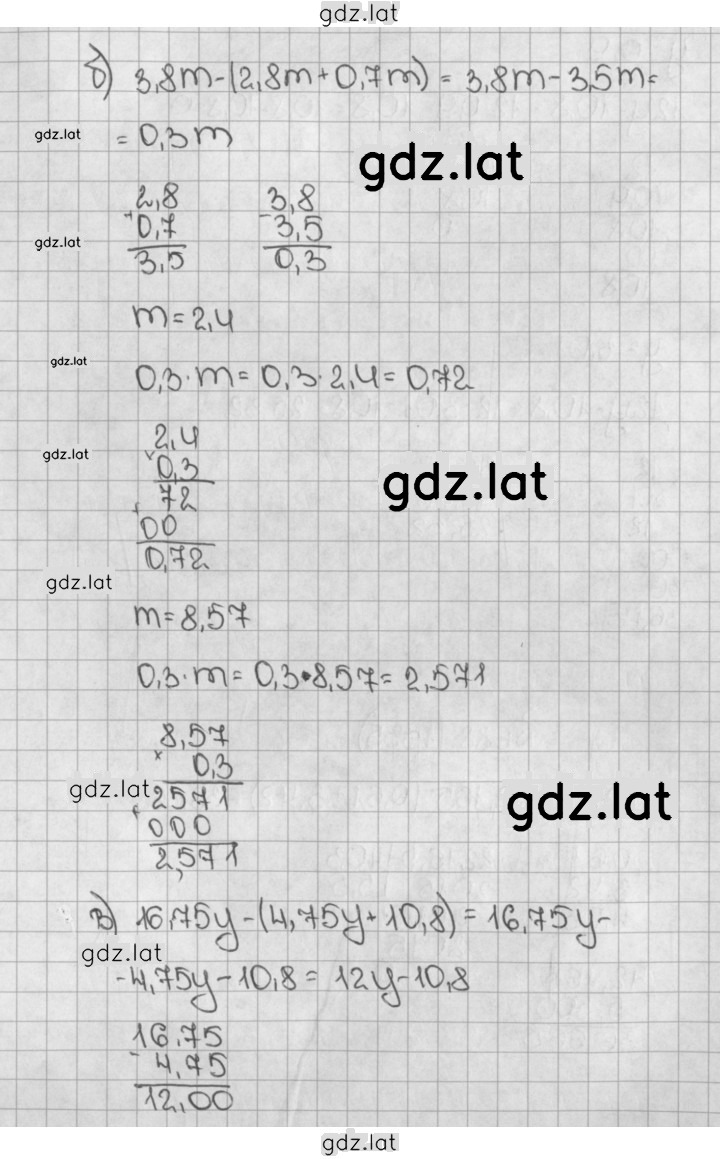 gdz.lat
б) 3,8m-(2,8m+0,7m) = 3,8m-3,5m=
gdz.lat
= 0,3m
gdz.lat
2,8 3,8
+ 0,7 - 3,5
gdz.lat
3,5 0,3
m=2,4
gdz.lat
0,3·m=0,3·2,4=0,72
2,4
gdz.lat
× 0,3
gdz.lat
72
+ 00
0,72
gdz.lat
m=8,57
0,3·m=0,3·8,57=2,571
8,57
× 0,3
gdz.lat
2571
gdz.lat
+ 000
2,571
в) 16,75y-(4,75y+10,8)=16,75y-
gdz.lat
-4,75y-10,8=12y-10,8
16,75
- 4,75
12,00
gdz.lat